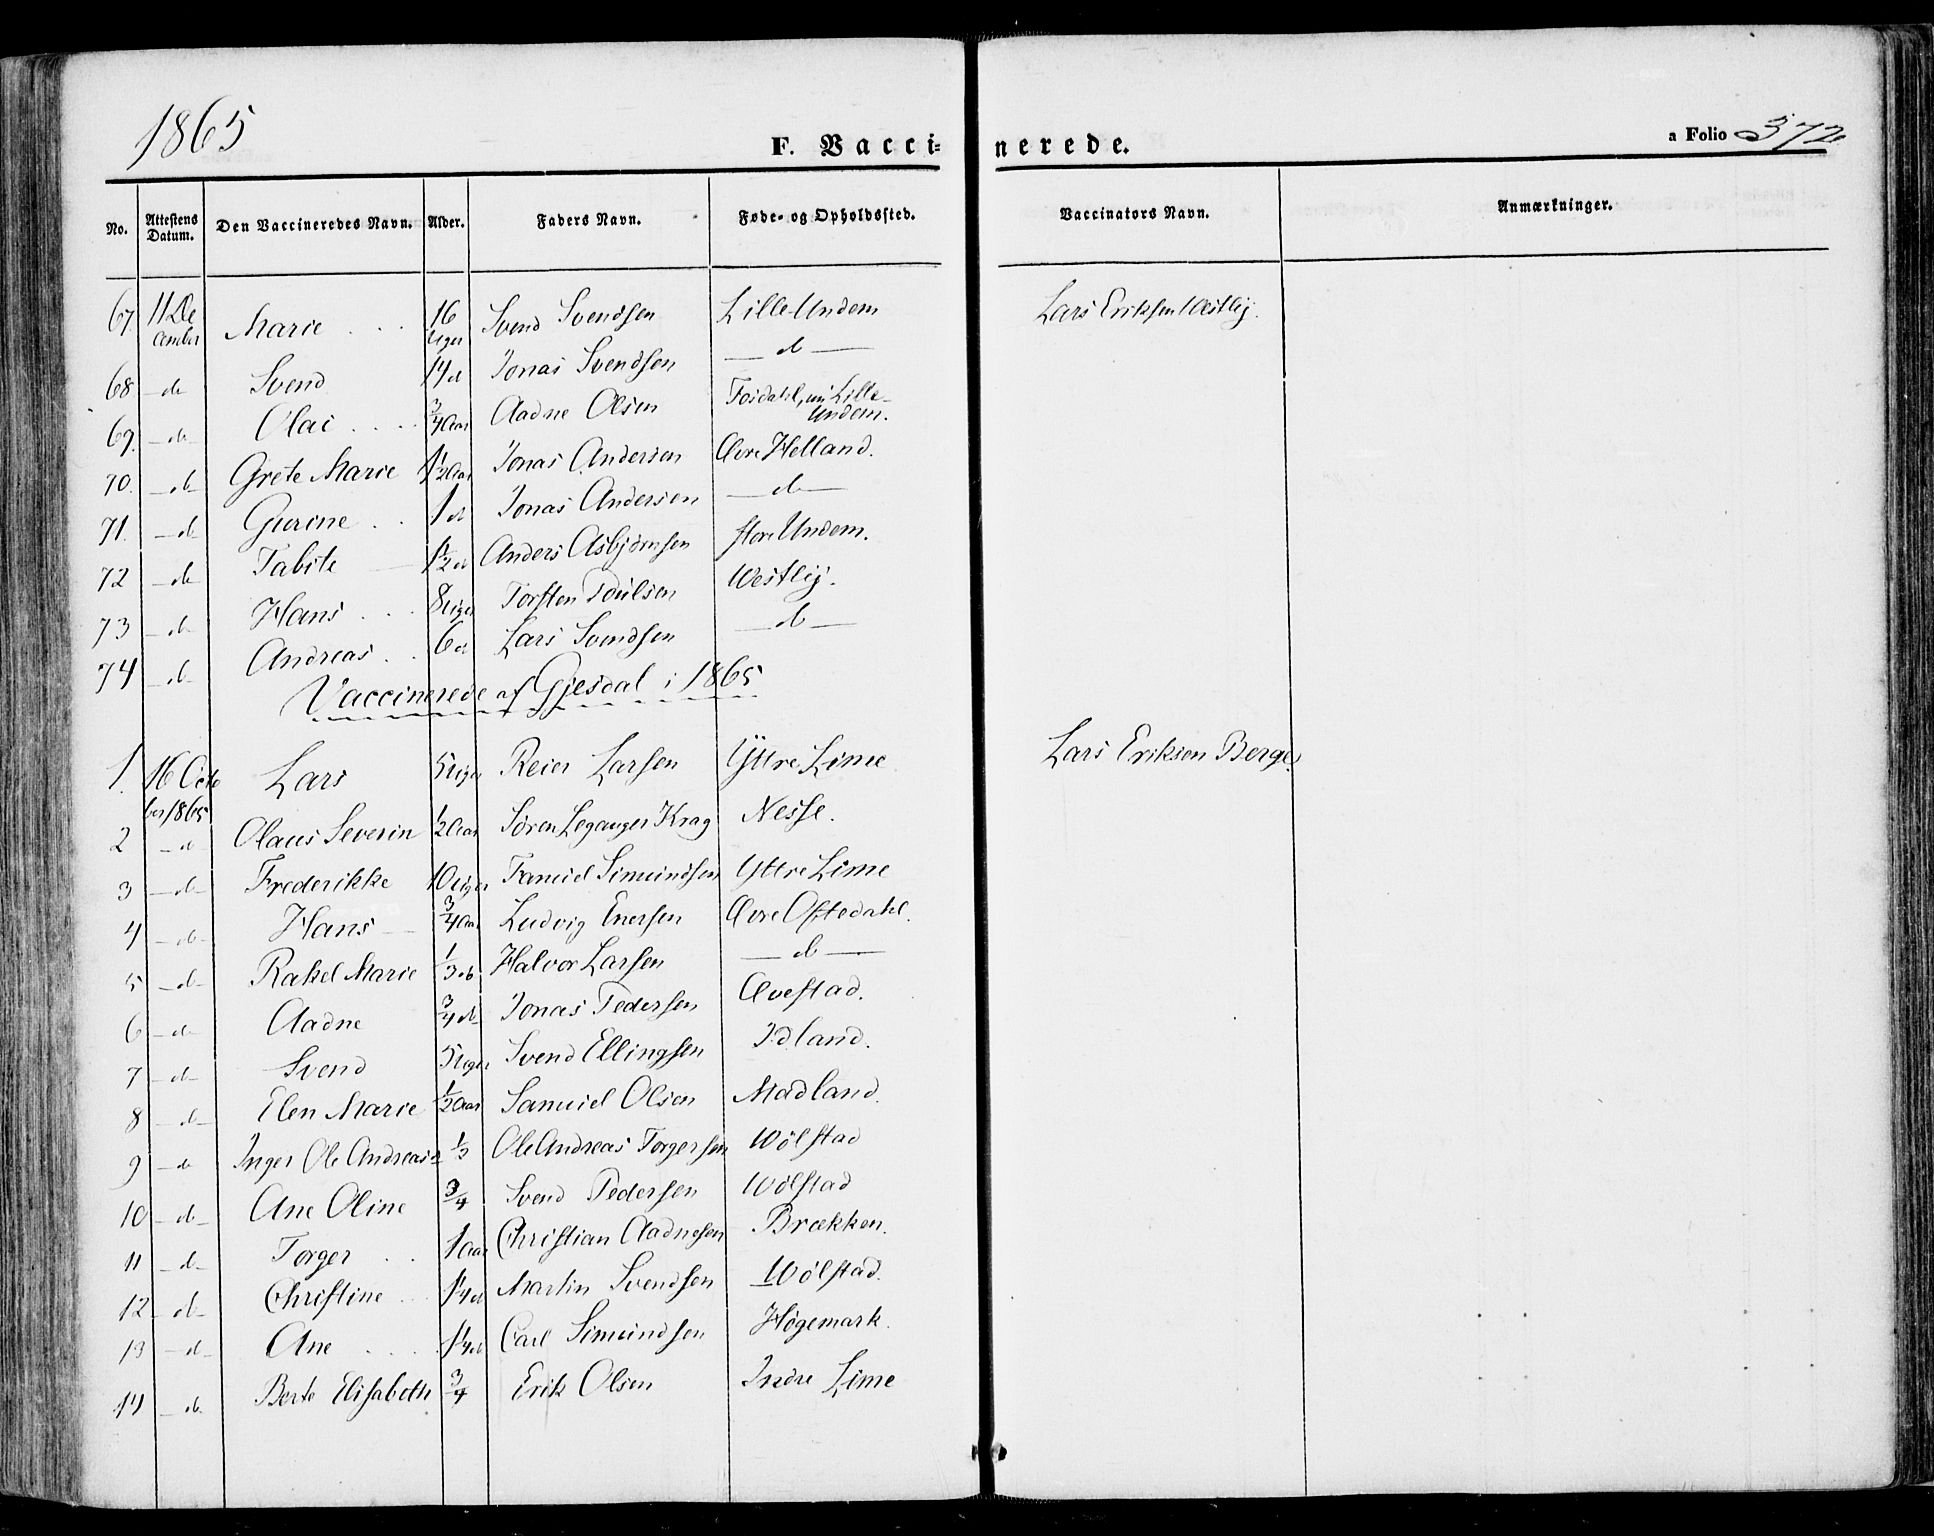 1865
F. Vaccinerede.
a Folio 372
No. Attestens Datum. Den Vaccineredes Navn. Alder. Faders Navn. Føde- og Opholdssted. Vaccinators Navn. Anmærkninger.
67 11 December Marie 16 Uger Svend Svendsen Lille Undem Lars Eriksen Westlij.
68 d Svend 14 d Jonas Svendsen d
69. d Olai 3/4 Aar Aadne Olsen Fosdahl, nu Lille-Undem.
70. d Grete Marie 1 1/2 Aar Jonas Andersen Øvre Helland.
71. d Gurine 1 d Jonas Andersen d
72 d Tabite 1 1/2 d Anders Asbjørnsen store Undem.
73 d Hans 8 Uger Torsten Poulsen Westlij.
74 d Andreas 6 d Lars Svendsen d
Vaccinerede af Gjesdal i 1865
1. 16 October 1865 Lars 5 Uger Reier Larsen Yttre Lime Lars Eriksen Berge.
2 d Olaus Severin 1/2 Aar Søren Leganger Krag Nesse.
3 d Frederikke 10 Uger Samuel Simundsen Yttre Lime
4 d Hans 3/4 Aar Ludvig Enersen Øvre Oftedahl.
5 d Rakel Marie 1/3 d Halvor Larsen d
6 d Aadne 3/4 d Jonas Pedersen Qvestad.
7 d Svend 5 Uger Svend Ellingsen Idland.
8 d Elen Marie 1/2 Aar Samuel Olsen Madland.
9 d Inger Ole Andreas 1/3 Ole Andreas Torgersen Wølstad
10 d Ane Oline 3/4 Svend Pedersen Wølstad
11 d Torger 1 Aar Christian Aadnesen Brækken.
12 d Christine 1 1/4 d Martin Svendsen Wølstad.
13 d Ane 1 1/4 d Carl Simundsen Høgemark.
14 d Berte Elisabeth 3/4 Erik Olsen Indre Lime